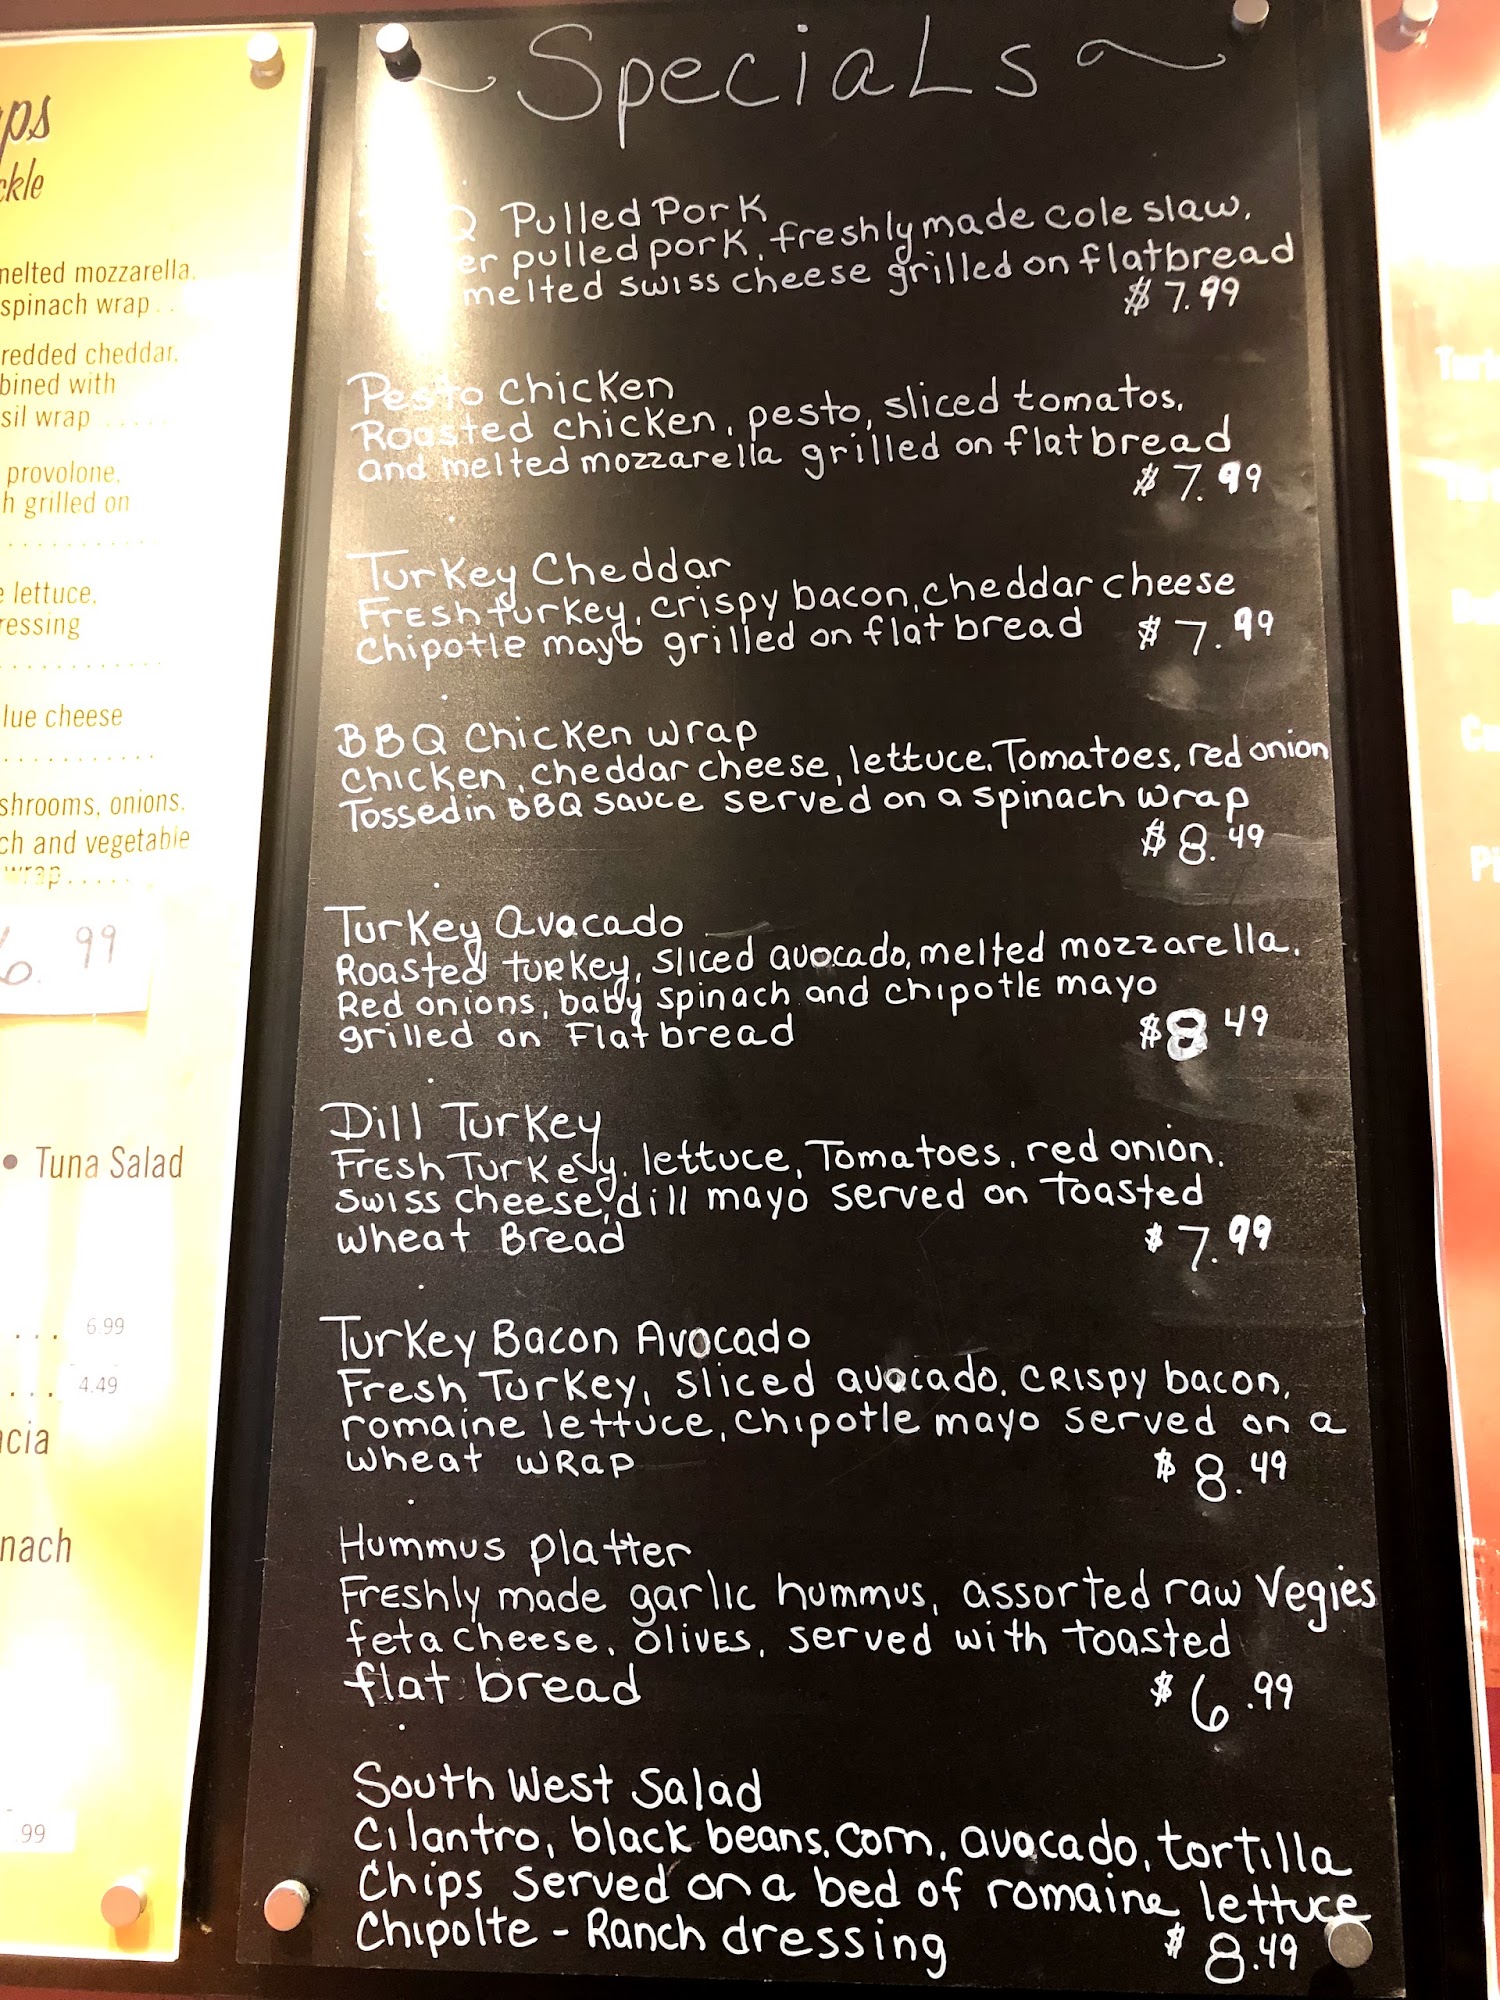 ~ Specials ~
Pulled Pork
pulled pork, freshly made cole slaw,
melted swiss cheese grilled on flatbread
$7.99
Pesto Chicken
Roasted chicken, pesto, sliced tomatos,
and melted mozzarella grilled on flat bread
$7.99
Turkey Cheddar
Fresh turkey, crispy bacon, cheddar cheese
Chipotle mayo grilled on flat bread $7.99
BBQ Chicken wrap
Chicken, cheddar cheese, lettuce, Tomatoes, red onion
Tossed in BBQ sauce served on a spinach wrap
$8.49
Turkey Avocado
Roasted turkey, sliced avocado, melted mozzarella,
Red onions, baby spinach and chipotle mayo
grilled on Flat bread $8.49
Dill Turkey
Fresh Turkey, lettuce, Tomatoes, red onion,
Swiss cheese, dill mayo served on toasted
wheat Bread $7.99
Turkey Bacon Avocado
Fresh Turkey, sliced avocado, crispy bacon,
romaine lettuce, chipotle mayo served on a
wheat wrap $8.49
Hummus platter
Freshly made garlic hummus, assorted raw Vegies
feta cheese, olives, served with toasted
flat bread $6.99
South West Salad
Cilantro, black beans, corn, avocado, tortilla
Chips served on a bed of romaine lettuce
Chipolte - Ranch dressing $8.49
melted mozzarella,
spinach wrap . .
cheddar,
with
wrap . . . . .
provolone,
grilled on
lettuce,
cheese
onions,
and vegetable
wrap . . . . .
6.99
• Tuna Salad
. . . 6.99
. . . 4.49
.99